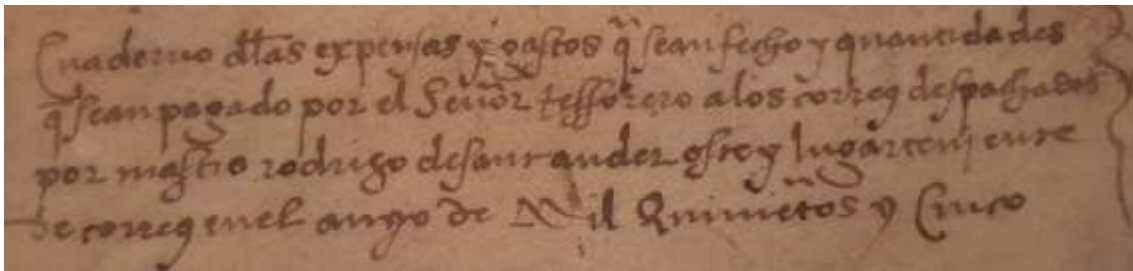 Cuaderno dllas expensas y gastos q̃ sean fecho y quantidades
q̃ sean pagado por el Señor tessorero a los correos despachados
por mastre rodrigo desantander oste y lugarteniente
de correos en el anyo de Mil Quiniẽtos y Cinco